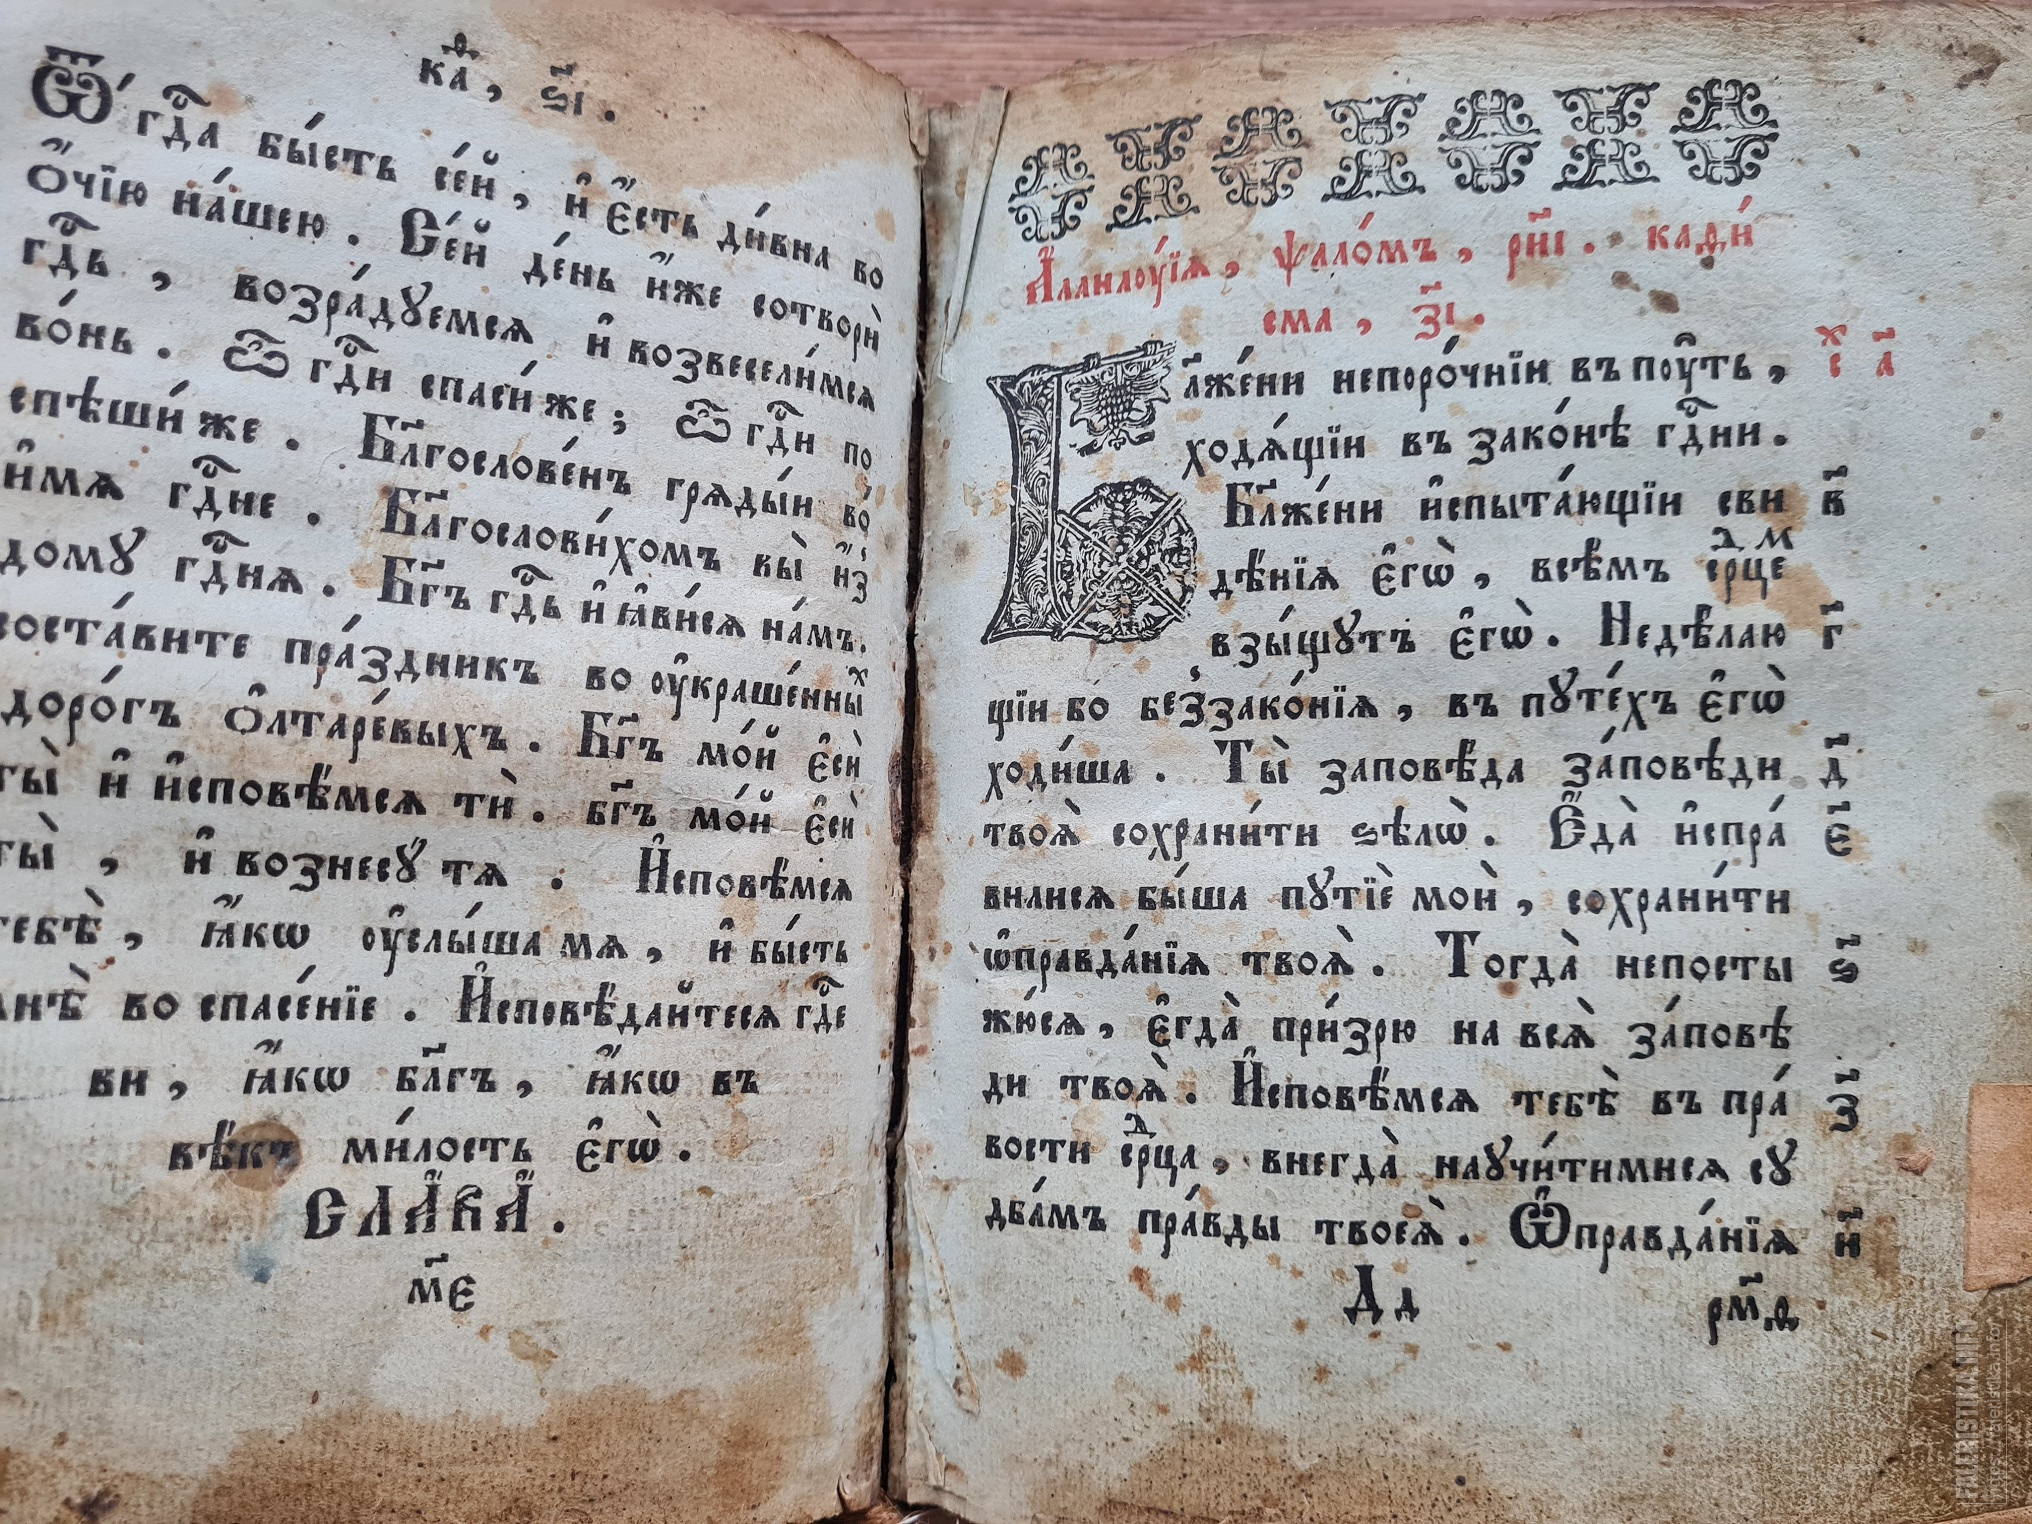 каѳ҇, ѕ҃і.
Ѿ гдⷭ҇а бы́сть се́й, и҆ є҆́сть ди́вна во
ѻ҆́чїю на́шею. Се́й де́нь и҆́же сотворѝ
гдⷭ҇ь, возра́дꙋемся и҆ возвесели́мся
во́нь. Ѽ гдⷭ҇и спаси́ же; ѽ гдⷭ҇и по
спѣши́ же. Бл҃гослове́нъ грѧды́и во́
и҆́мѧ гдⷭ҇не. Бл҃гослови́хомъ вы̀ и҆з̾
домꙋ гдⷭ҇нѧ. Бг҃ъ гдⷭ҇ь и҆ ꙗ҆ви́сѧ на́мъ.
соста́вите пра́здникъ во оу҆краше́нныⷯ
до рогъ ѻ҆лтаре́выхъ. Бг҃ъ мо́й є҆сѝ
ты̀ и҆ и҆сповѣ́мсѧ тѝ. бг҃ъ мо́й є҆сѝ
ты̀, и҆ вознесꙋ́ тѧ. И҆сповѣ́мсѧ
тебѣ̀, ꙗ҆́кѡ оу҆слы́ша мѧ, и҆ бы́сть
мнѣ̀ во спасе́нїе. И҆сповѣ́дайтесѧ гдⷭ҇е
ви, ꙗ҆́кѡ бл҃гъ, ꙗ҆́кѡ въ
вѣ́къ ми́лость є҆гѡ̀.
СЛА́ВА̀.
м҃е
А҆ллилоу́їѧ, ѱало́мъ, рн҃і. каѳи́
сма, з҃і.
Бл҃же́ни непоро́чнїи въ поу҆ть, хс а҃
ходѧ́щїи въ зако́нѣ гдⷭ҇ни.
Бл҃же́ни и҆спыта́ющїи сви в҃
дѣ́нїѧ є҆гѡ̀, всѣ́мъ срⷣцеⷨ
взы́щꙋтъ є҆гѡ̀. Не дѣ́лаю г҃
щїи бо́ без̾зако́нїѧ, въ пꙋте́хъ є҆гѡ̀
ходи́ша. Ты̀ заповѣ́да за́повѣди д҃
твоѧ̀ сохрани́ти ѕѣлѡ̀. Є҆да̀ и҆спра́ є҃
вилисѧ бы́ша пꙋтїѐ моѝ, сохрани́ти
ѡ҆правда́нїѧ твоѧ̀. Тогда̀ не посты ѕ҃
жю́сѧ, є҆гда̀ при́зрю на всѧ̀ за́повѣ
ди твоѧ̀. И҆сповѣ́мсѧ тебѣ̀ въ пра́ з҃
вости срⷣца, внегда̀ наꙋчи́тимисѧ сꙋ
дба́мъ пра́вды твоеѧ̀. Ѡ҆правда́нїѧ и҃
Дд рм҃ѳ
FALERISTIKA.INFO
https://faleristika.info/